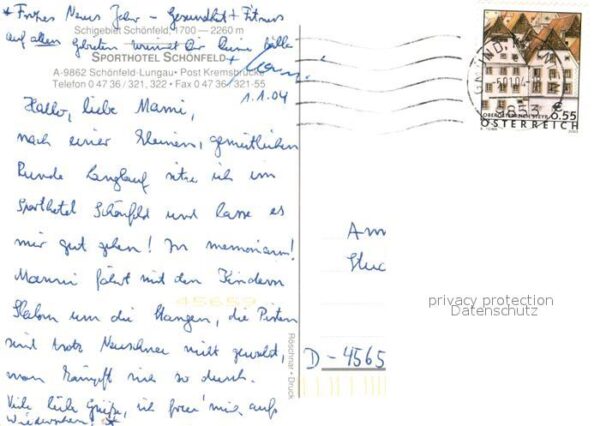 * Frohes Neues Jahr - Gesundheit + Fitness
auf allen Gebieten wünscht Dir Deine
Schigebiet Schönfeld, 1700 — 2260 m
SPORTHOTEL SCHÖNFELD
A-9862 Schönfeld-Lungau • Post Kremsbrücke
Telefon 0 47 36 / 321, 322 • Fax 0 47 36/321-55
1.1.04
Hallo, liebe Mami,
nach einer kleinen, gemütlichen
Runde Langlauf sitze ich im
Sporthotel Schönfeld und lasse es
mir gut gehen! In memoriam!
Manni fährt mit den Kindern
Slalom um die Stangen, die Pisten
sind trotz Neuschnee nicht gewalzt,
man kämpft sich so durch.
Viele liebe Grüße, ich freu' mich aufs
Wiedersehen!
45659
Röschnar • Druck
GMÜND
5.01.04
9853
€ 0.55
ÖSTERREICH
D-4565
privacy protection
Datenschutz